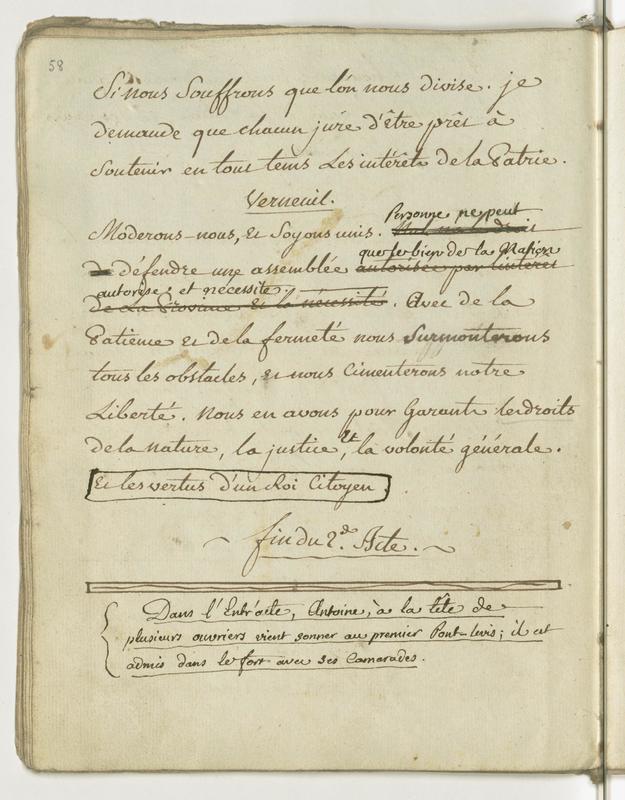 58
Si nous Souffrons que l'on nous divise. je
demande que chacun jure d'être prêt à
soutenir en tous tems Les intérêts de la Patrie.
Verneuil.
Personne ne peut
Moderons-nous, Et Soyons unis.
que le bien de la Nation
défendre une assemblée autorisée par L'intérêt
autorise, et nécessite.
de La Province Et la nécessité. Avec de la
Patience Et de la fermeté nous Surmonterons
tous les obstacles, et nous Cimenterons notre
Liberté. Nous en avons pour Garants les droits
de la nature, la justice, Et la volonté générale.
Et les vertus d'un Roi Citoyen
~ fin du 2.d Acte. ~
Dans l'Entr'acte, Antoine, à la tête de
plusieurs ouvriers vient sonner au premier Pont-levis; il est
admis dans le fort avec ses Camarades.